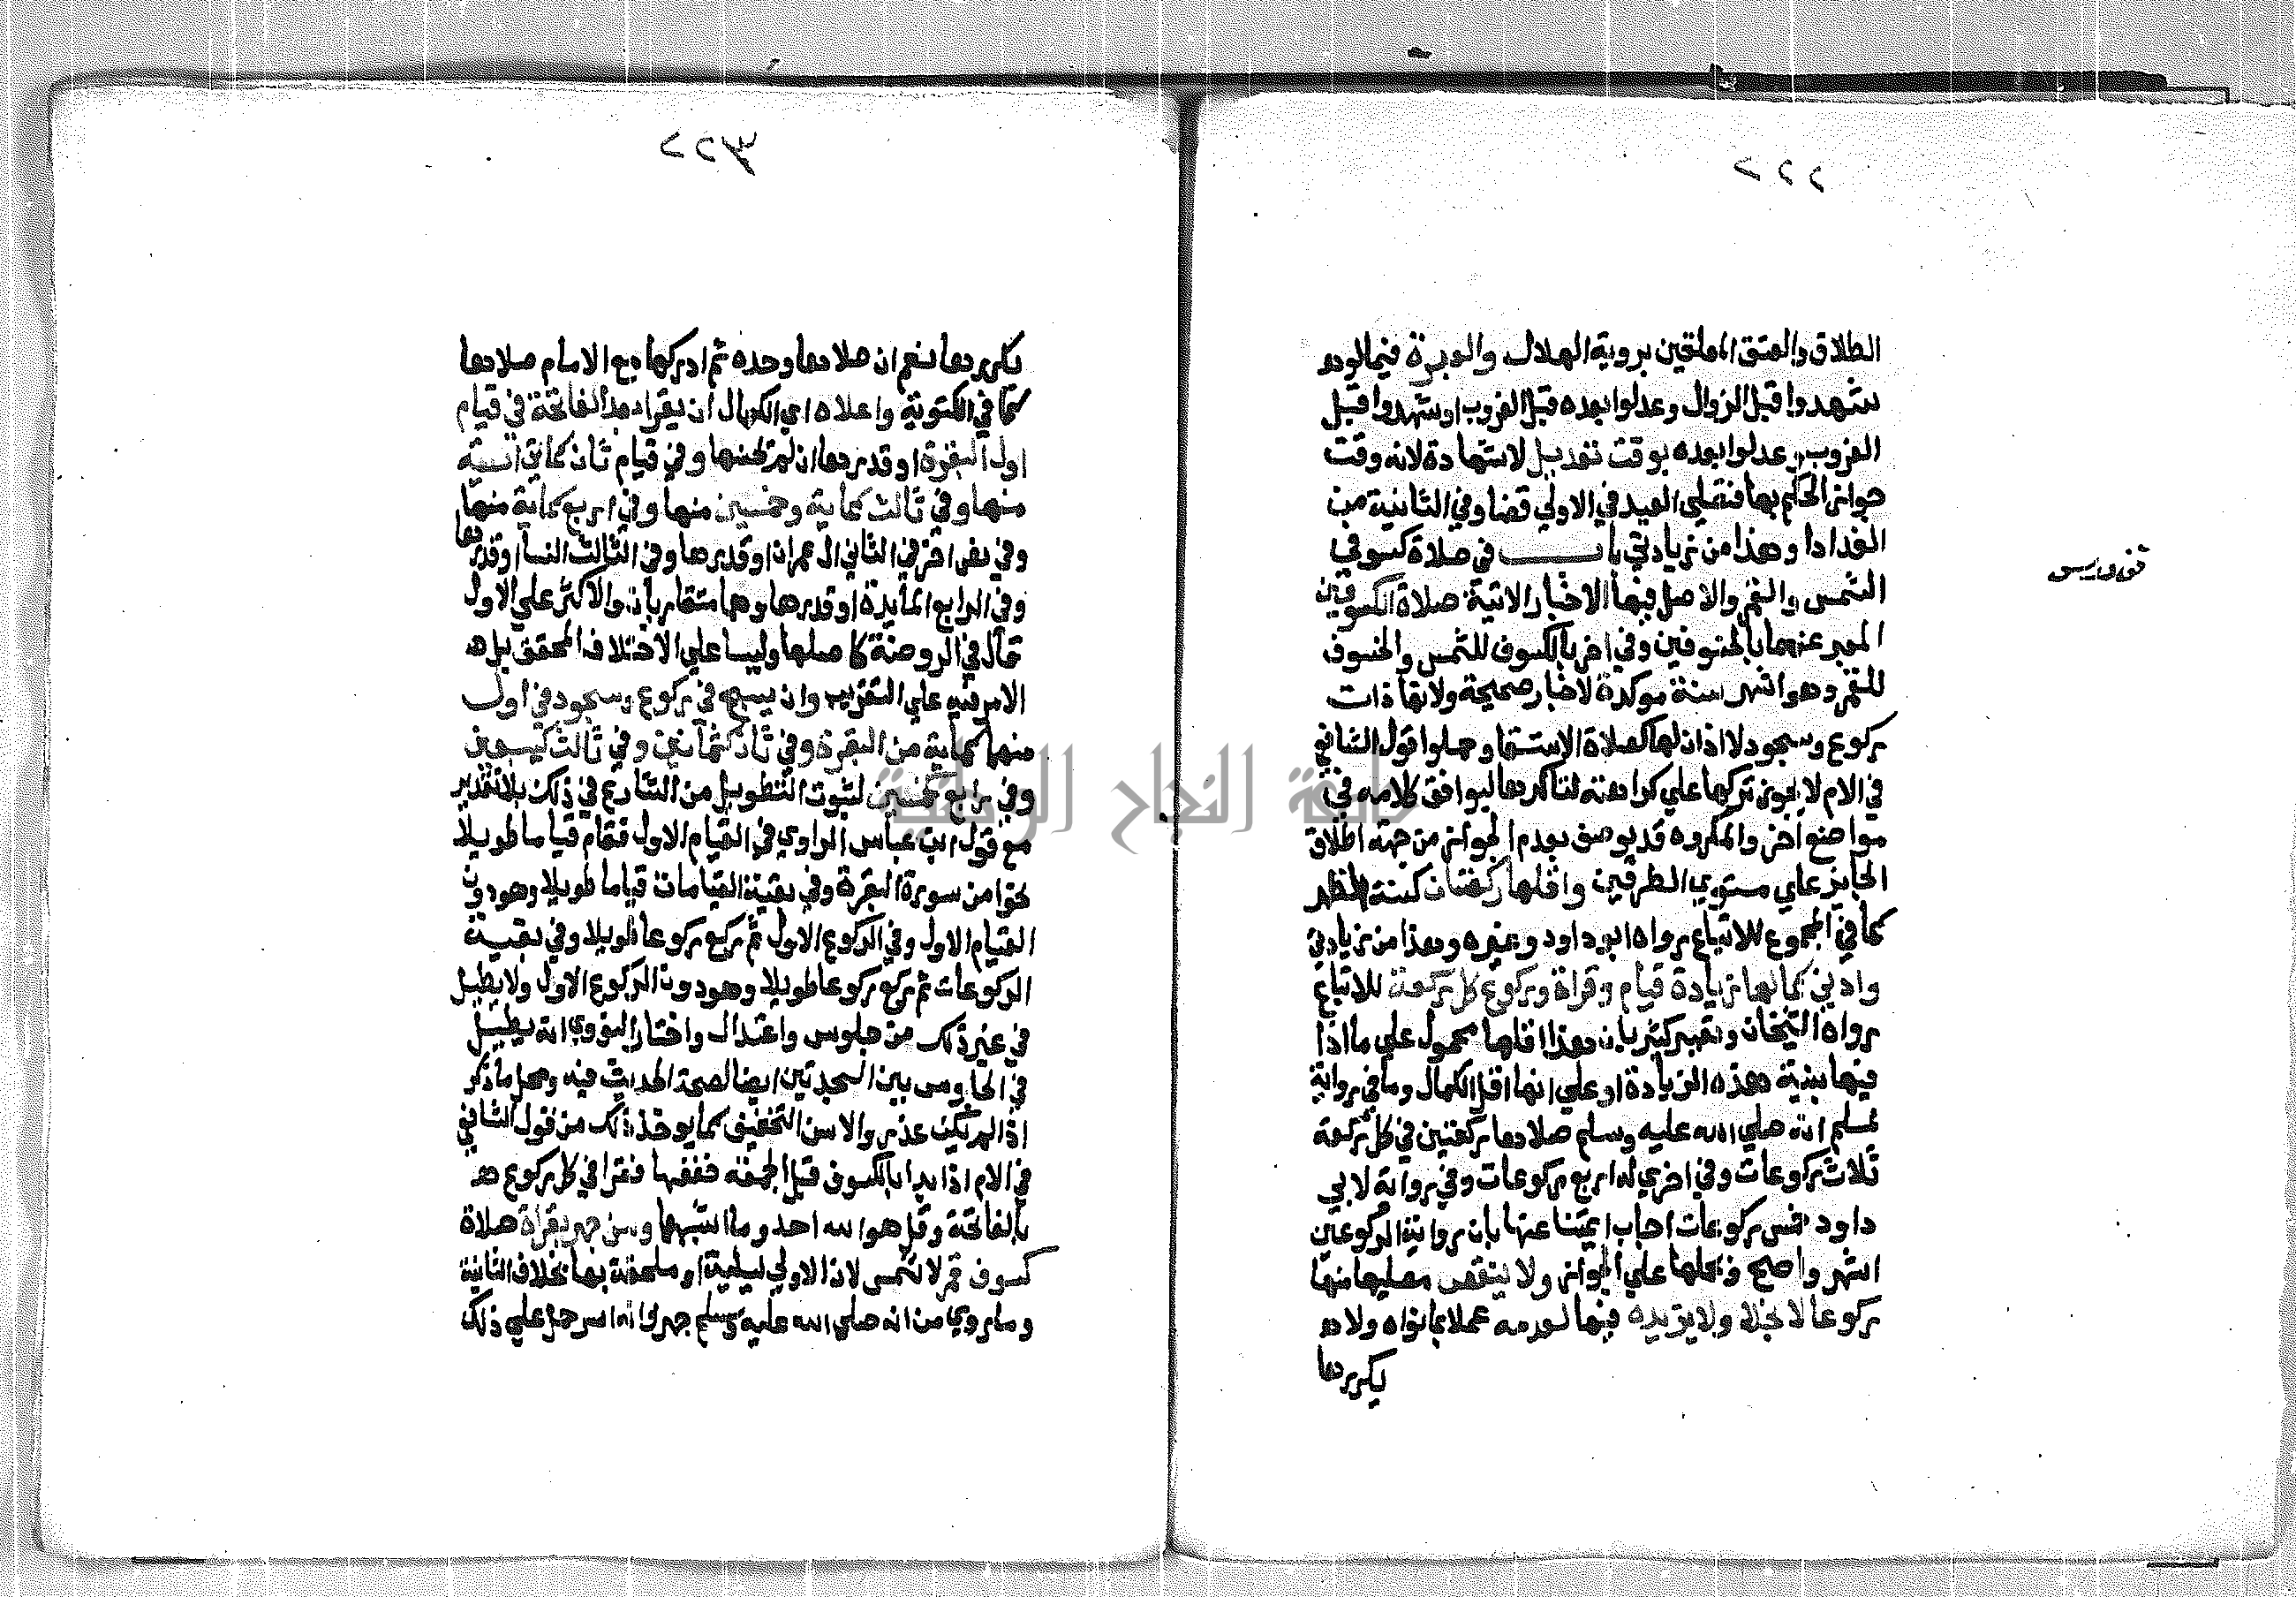 ٢٢٢
الطلاق والعتق المعلقين بروية الهلال والعبرة فيما لو
شهدوا قبل الزوال وعدلوا بعده قبل الغروب او شهدوا قبل
الغروب وعدلوا بعده بوقت تعديل لا شهادة لانه وقت
جواز الحكم بها فتصلي العيد في الاولي قضا وفي الثانية من
الغد ادا وهذا من زيادتي باب في صلاة كسوفي
الشمس والقمر والاصل فيها الاخبار الاتية صلاة الكسوفين
المعبر عنهما بالخسوفين وفي اخر بالكسوف للشمس والخسوف
للقمر وهو اشهر سنة موكدة لاخبار صحيحة ولانها ذات
ركوع وسجود لا اذان لها كصلاة الاستسقا وحملوا قول الشافعي
في الام لا يجوز تركها علي كراهته لتاكدها ليوافق كلامه في
مواضع اخر والمكروه قد يوصف بعدم الجواز من جهة اطلاق
الجايز علي مستوي الطرفين واقلها ركعتان كسنة الظهر
كما في المجموع للاتباع رواه ابو داود وغيره وهذا من زيادتي
وادني كمالها زيادة قيام وقراة وركوع كل ركعة للاتباع
رواه الشيخان وتعبير كثير بان هذا اقلها محمول علي ما اذا
فيها بنية هذه الزيادة او علي انها اقل الكمال وما في رواية
لمسلم انه صلي الله عليه وسلم صلاها ركعتين في كل ركعة
ثلاث ركوعات وفي اخري له اربع ركوعات وفي رواية لابي
داود خمس ركوعات اجاب ايمتنا عنها بان رواية الركوعين
اشهر واصح وبحملها علي الجواز ولا ينقص مصليها منها
ركوعا لانجلا ولا يزيده فيها لعدمه عملا بما نواه ولا
يكررها
٢٢٣
يكررها نعم ان صلاها وحده ثم ادركها مع الامام صلاها
كما في المكتوبة واعلاه اي الكمال ان يقرا بعد الفاتحة في قيام
اول البقرة او قدرها ان لم يحسنها وفي قيام ثان كمايتي اية
منها وفي ثالث كماية وخمسين منها وفي اربع كماية منها
وفي نص اخر في الثاني ال عمران او قدرها وفي الثالث النسا او قدرها
وفي الرابع المايدة او قدرها وهما متقاربان والاكثر علي الاول
قال في الروضة كاصلها وليسا علي الاختلاف المحقق بل
الامر فيه علي التقريب وان يسبح في ركوع وسجود في اول
منها كماية من البقرة وفي ثان كثمانين وفي ثالث كسبعين
وفي رابع كخمسين لثبوت التطويل من الشارع في ذلك بلا تقدير
مع قول ابن عباس الراوي في القيام الاول فقام قياما طويلا
نحوا من سورة البقرة وفي بقية القيامات قياما طويلا وهو دون
القيام الاول وفي الركوع الاول ثم ركع ركوعا طويلا وفي بقية
الركوعات ثم ركع ركوعا طويلا وهو دون الركوع الاول ولا يطيل
في غير ذلك من جلوس واعتدال واختار النووي انه يطيل
في الجلوس بين السجدتين ايضا لصحة الحديث فيه ومحل ما ذكر
اذا لم يكن عذر والا سن التخفيف كما يوخذ ذلك من قول الشافعي
في الام اذا بدا بالكسوف قبل الجمعة خففها فقرا في كل ركوع
بالفاتحة وقل هو الله احد وما اشبهها وسن جهر بقراة صلاة
كسوف قمر لا شمس لان الاولي ليلية او ملحقة بها بخلاف الثانية
وما روي من انه صلي الله عليه وسلم جهر وانه اسر حمل علي ذلك
جامعة النجاح الوطنية